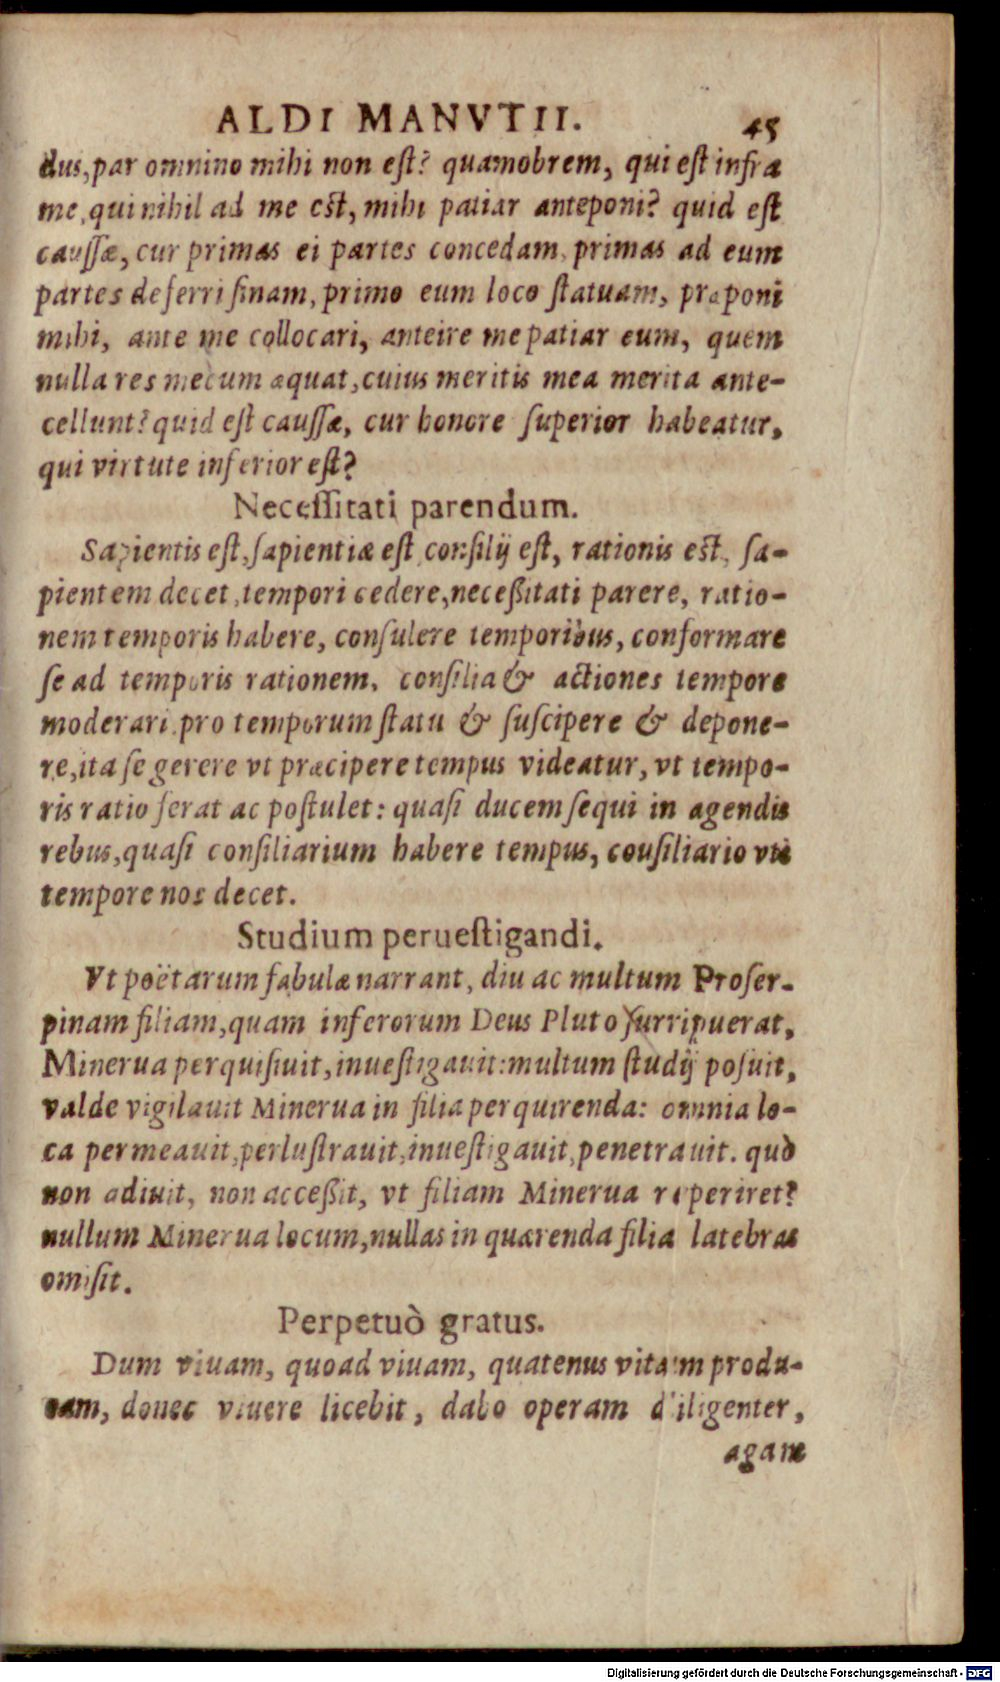 ALDI MANVTII. 45
dus, par omnino mihi non est? quamobrem, qui est infra
me, qui nihil ad me est, mihi patiar anteponi? quid est
caussæ, cur primas ei partes concedam, primas ad eum
partes deferri sinam, primo eum loco statuam, præponi
mihi, ante me collocari, anteire me patiar eum, quem
nulla res mecum æquat, cuius meritis mea merita ante-
cellunt? quid est caussæ, cur honore superior habeatur,
qui virtute inferior est?
Necessitati parendum.
Sapientis est, sapientiæ est consilij est, rationis est, sa-
pientem decet, tempori cedere, necessitati parere, ratio-
nem temporis habere, consulere temporibus, conformare
se ad temporis rationem, consilia & actiones tempore
moderari pro temporum statu & suscipere & depone-
re, ita se gerere vt præcipere tempus videatur, vt tempo-
ris ratio ferat ac postulet: quasi ducem sequi in agendis
rebus, quasi consiliarium habere tempus, cousiliario vti
tempore nos decet.
Studium peruestigandi.
Vt poëtarum fabulæ narrant, diu ac multum Proser-
pinam filiam, quam inferorum Deus Pluto surripuerat,
Minerua perquisiuit, inuestigauit: multum studij posuit,
valde vigilauit Minerua in filia perquirenda: omnia lo-
ca permeauit, perlustrauit, inuestigauit, penetrauit. quò
non adiuit, non accessit, vt filiam Minerua reperiret?
nullum Minerua locum, nullas in quærenda filia latebras
omisit.
Perpetuò gratus.
Dum viuam, quoad viuam, quatenus vitam produ-
cam, donec viuere licebit, dabo operam diligenter,
agam
Digitalisierung gefördert durch die Deutsche Forschungsgemeinschaft - DFG